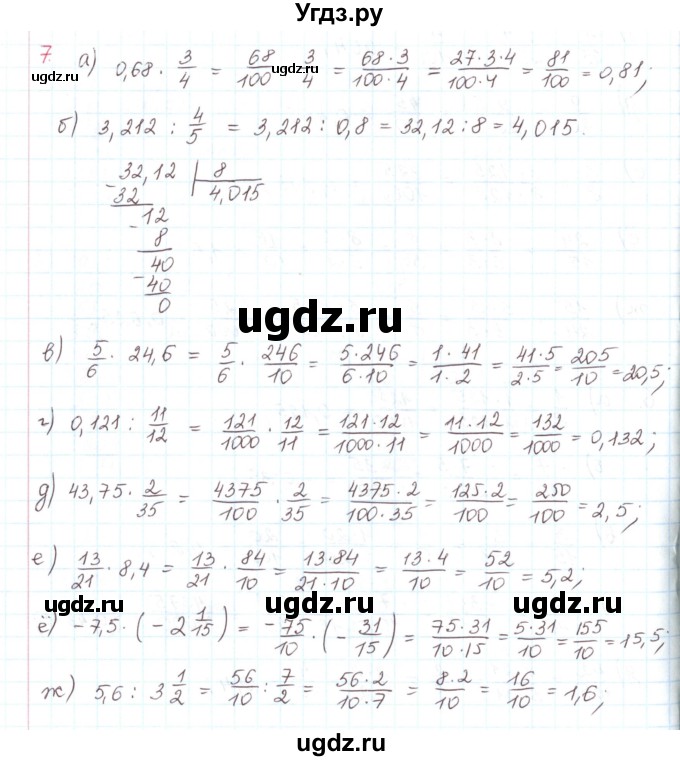 Угдз.ру
7. а) 0,68 · 3/4 = 68/100 · 3/4 = 68·3/100·4 = 27·3·4/100·4 = 81/100 = 0,81;
ugdz.ru
ugdz.ru
ugdz.ru
б) 3,212 : 4/5 = 3,212 : 0,8 = 32,12 : 8 = 4,015.
32,12 | 8
- 32 4,015
12
- 8
40
- 40
0
ugdz.ru
ugdz.ru
ugdz.ru
в) 5/6 · 24,6 = 5/6 · 246/10 = 5·246/6·10 = 1·41/1·2 = 41·5/2·5 = 205/10 = 20,5;
ugdz.ru
г) 0,121 : 11/12 = 121/1000 · 12/11 = 121·12/1000·11 = 11·12/1000 = 132/1000 = 0,132;
д) 43,75 · 2/35 = 4375/100 · 2/35 = 4375·2/100·35 = 125·2/100 = 250/100 = 2,5;
ugdz.ru
е) 13/21 · 8,4 = 13/21 · 84/10 = 13·84/21·10 = 13·4/10 = 52/10 = 5,2;
ugdz.ru
ugdz.ru
ugdz.ru
ё) -7,5 · (-2 1/15) = -75/10 · (-31/15) = 75·31/10·15 = 5·31/10 = 155/10 = 15,5;
ж) 5,6 : 3 1/2 = 56/10 : 7/2 = 56·2/10·7 = 8·2/10 = 16/10 = 1,6;
ugdz.ru